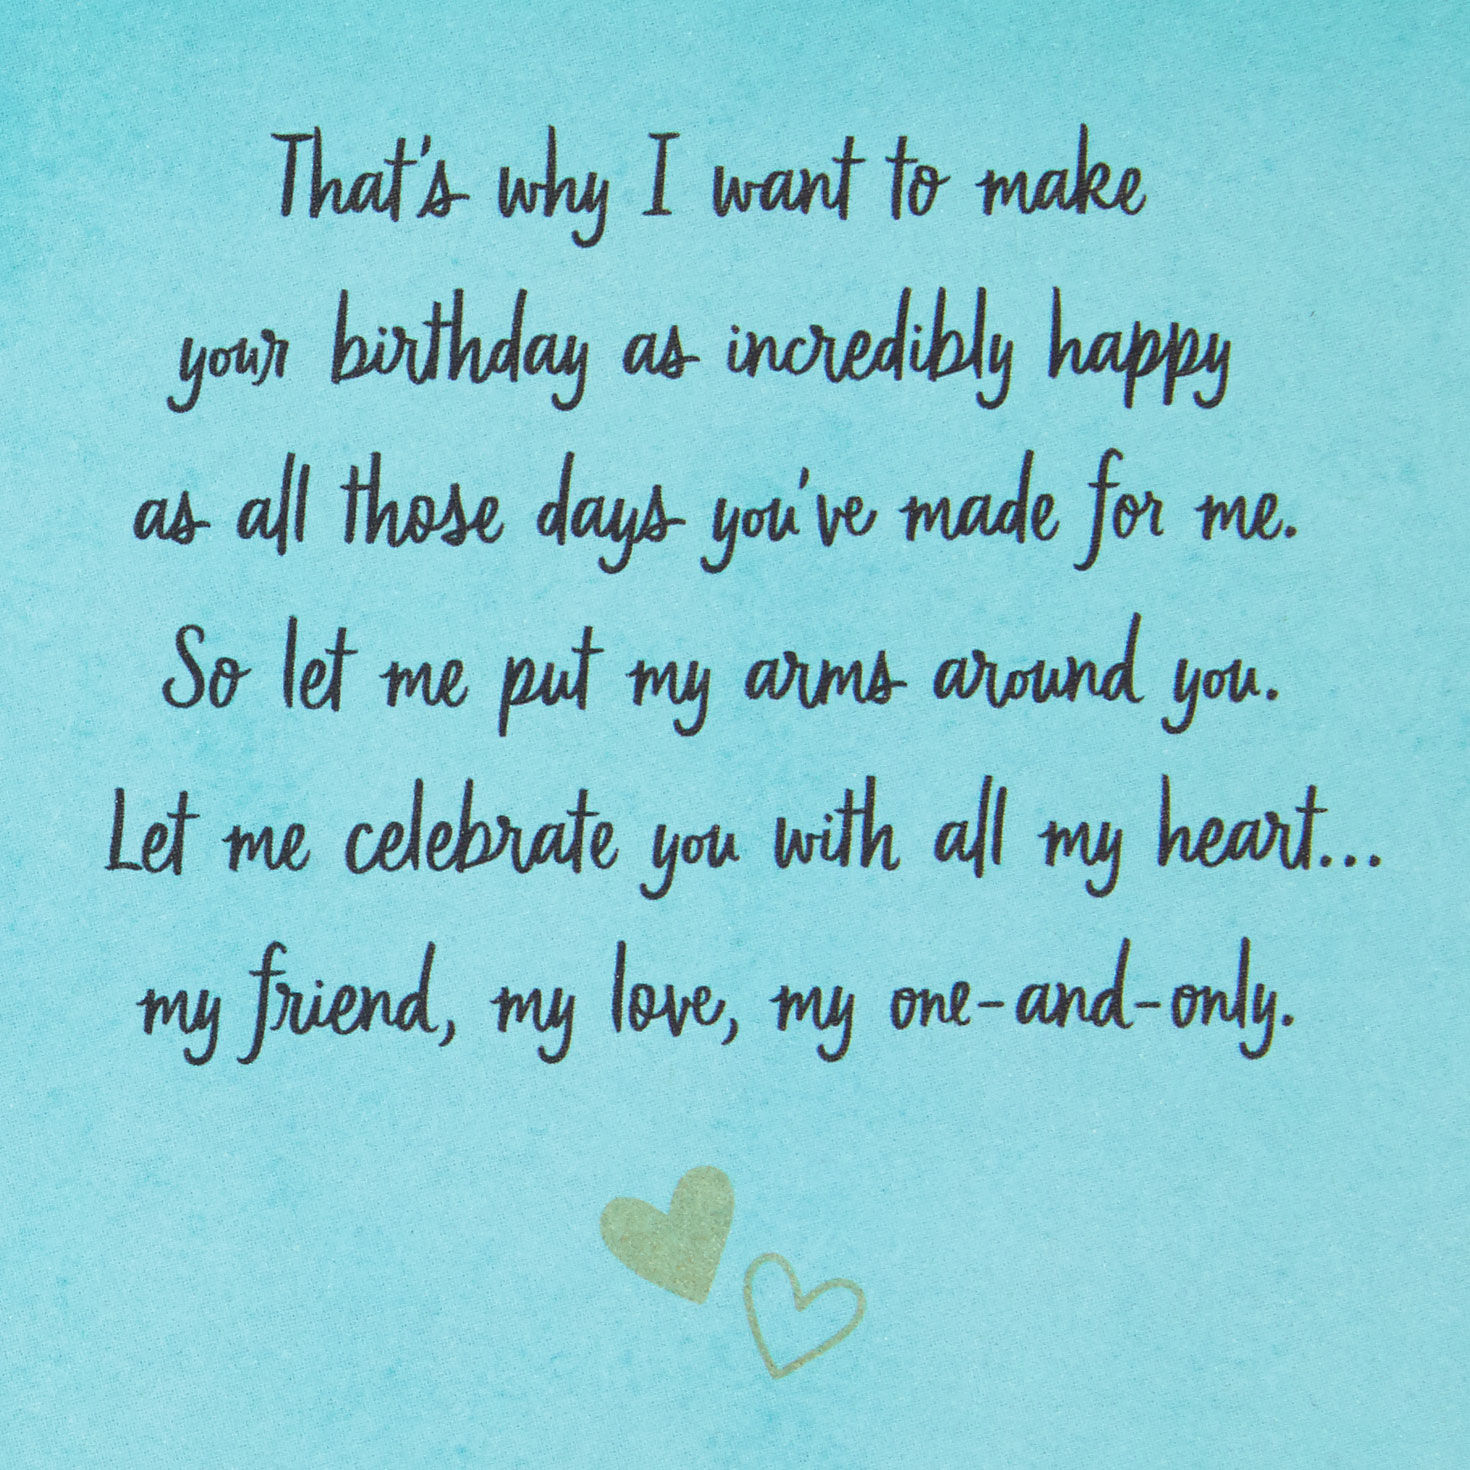 That's why I want to make
your birthday as incredibly happy
as all those days you've made for me.
So let me put my arms around you.
Let me celebrate you with all my heart...
my friend, my love, my one-and-only.